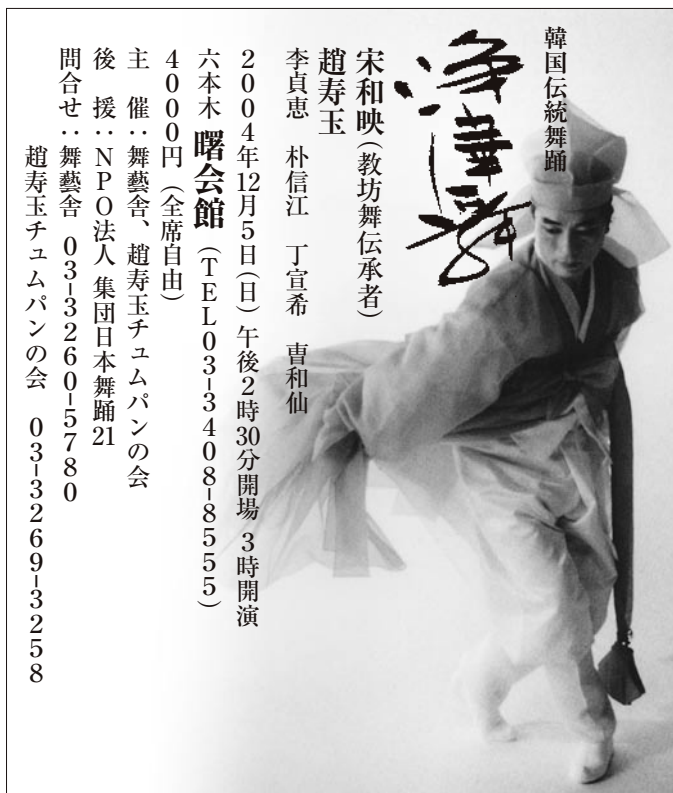 韓国伝統舞踊
浄華舞
宋和映(教坊舞伝承者)
趙寿玉
李貞恵 朴信江 丁宣希 曺和仙
2004年12月5日(日)午後2時30分開場 3時開演
六本木 曙会館(TEL03-3408-8555)
4000円(全席自由)
主 催:舞藝舎、趙寿玉チュムパンの会
後 援:NPO法人 集団日本舞踊21
問合せ:舞藝舎 03-3260-5780
趙寿玉チュムパンの会 03-3269-3258